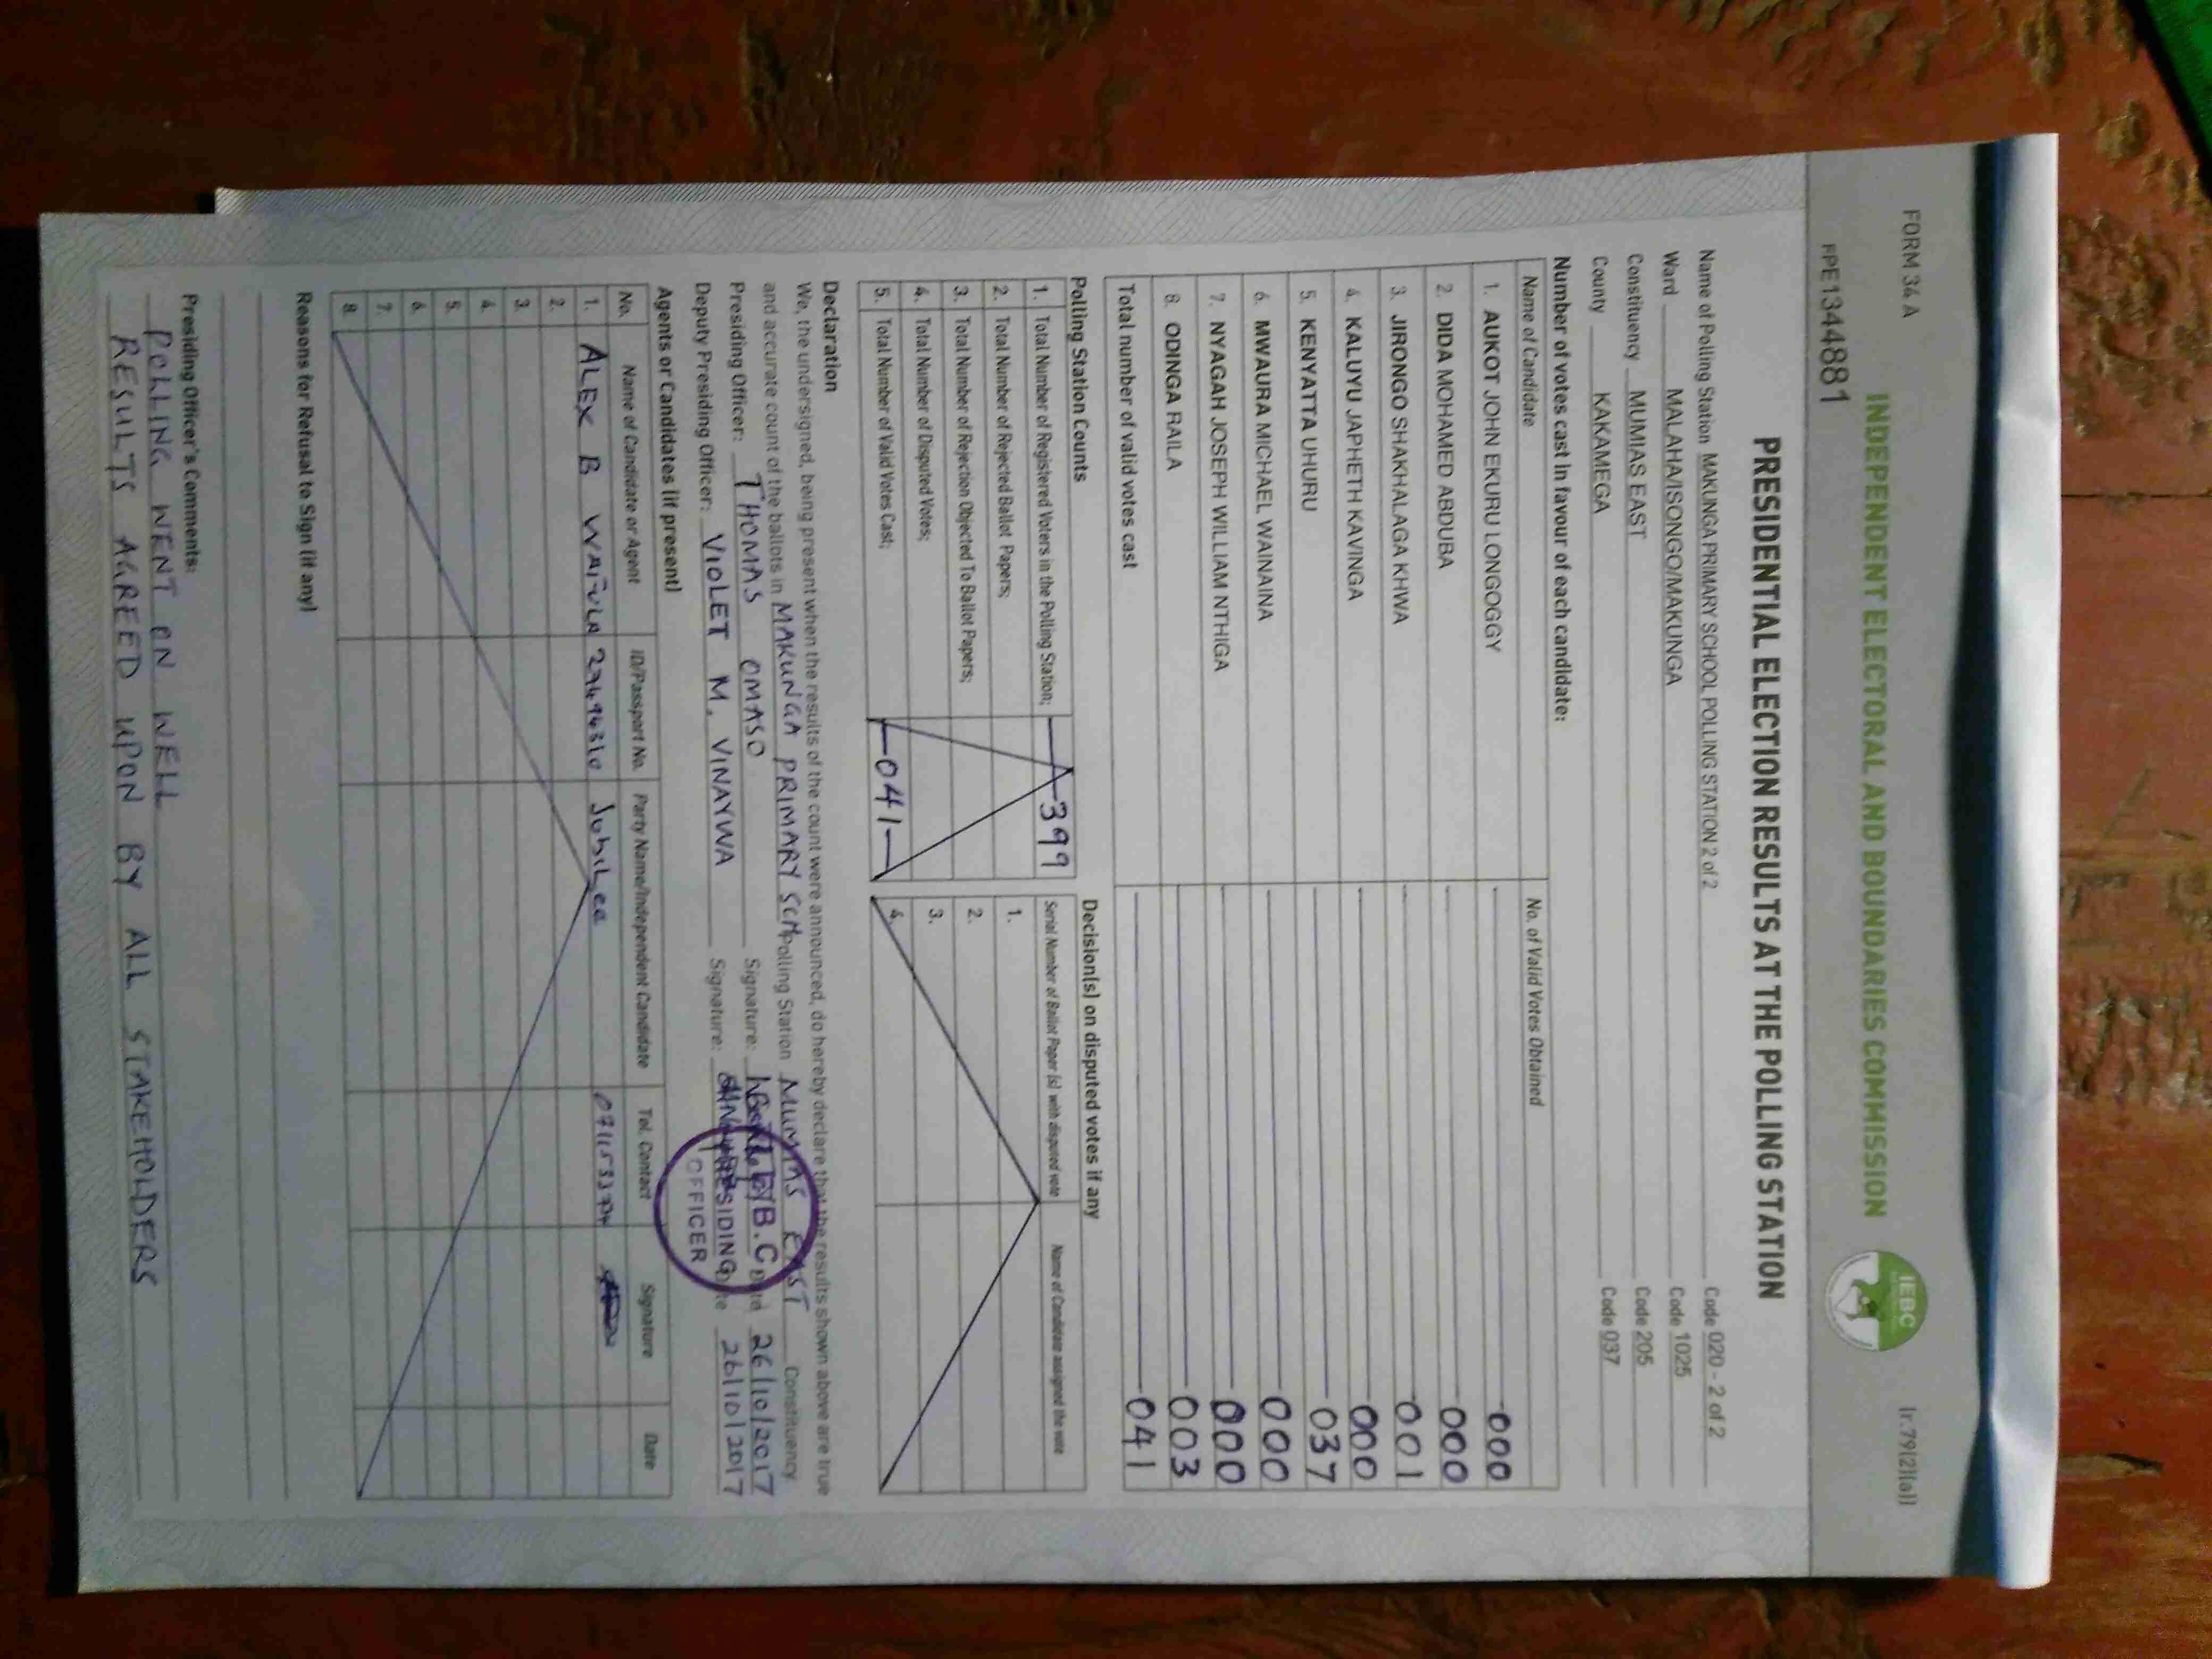 FORM 34A
(r.79(2)(a))
INDEPENDENT ELECTORAL AND BOUNDARIES COMMISSION
IEBC
PE134881
PRESIDENTIAL ELECTION RESULTS AT THE POLLING STATION
Name of Polling Station MAKUNGA PRIMARY SCHOOL POLLING STATION 2 of 2 Code 020 - 2 of 2
Ward MALAHA/ISONGO/MAKUNGA Code 1025
Constituency MUMIAS EAST Code 205
County KAKAMEGA Code 037
Number of votes cast in favour of each candidate:
Name of Candidate No. of Valid Votes Obtained
1. AUKOT JOHN EKURU LONGOGGY 000
2. DIDA MOHAMED ABDUBA 000
3. JIRONGO SHAKHALAGA KHWA 001
4. KALUYU JAPHETH KAVINGA 000
5. KENYATTA UHURU 037
6. MWAURA MICHAEL WAINAINA 000
7. NYAGAH JOSEPH WILLIAM NTHIGA 000
8. ODINGA RAILA 003
Total number of valid votes cast 041
Polling Station Counts
1. Total Number of Registered Voters in the Polling Station; 399
2. Total Number of Rejected Ballot Papers;
3. Total Number of Rejection Objected To Ballot Papers;
4. Total Number of Disputed Votes;
5. Total Number of Valid Votes Cast; 041
Decision(s) on disputed votes if any
Serial Number of Ballot Paper (s) with disputed vote Name of Candidate assigned the vote
1.
2.
3.
4.
Declaration
We, the undersigned, being present when the results of the count were announced, do hereby declare that the results shown above are true
and accurate count of the ballots in MAKUNGA PRIMARY SCH Polling Station MUMIAS EAST Constituency
Presiding Officer: THOMAS OMASO Signature: Date 26/10/2017
Deputy Presiding Officer: VIOLET M. VINAYWA Signature: Date 26/10/2017
PRESIDING
OFFICER
Agents or Candidates (if present)
No. Name of Candidate or Agent ID/Passport No. Party Name/Independent Candidate Tel. Contact Signature Date
1. ALEX B Jubilee
2.
3.
4.
5.
6.
7.
8.
Reasons for Refusal to Sign (if any)
Presiding Officer's Comments:
POLLING WENT ON WELL
RESULTS AGREED UPON BY ALL STAKEHOLDERS